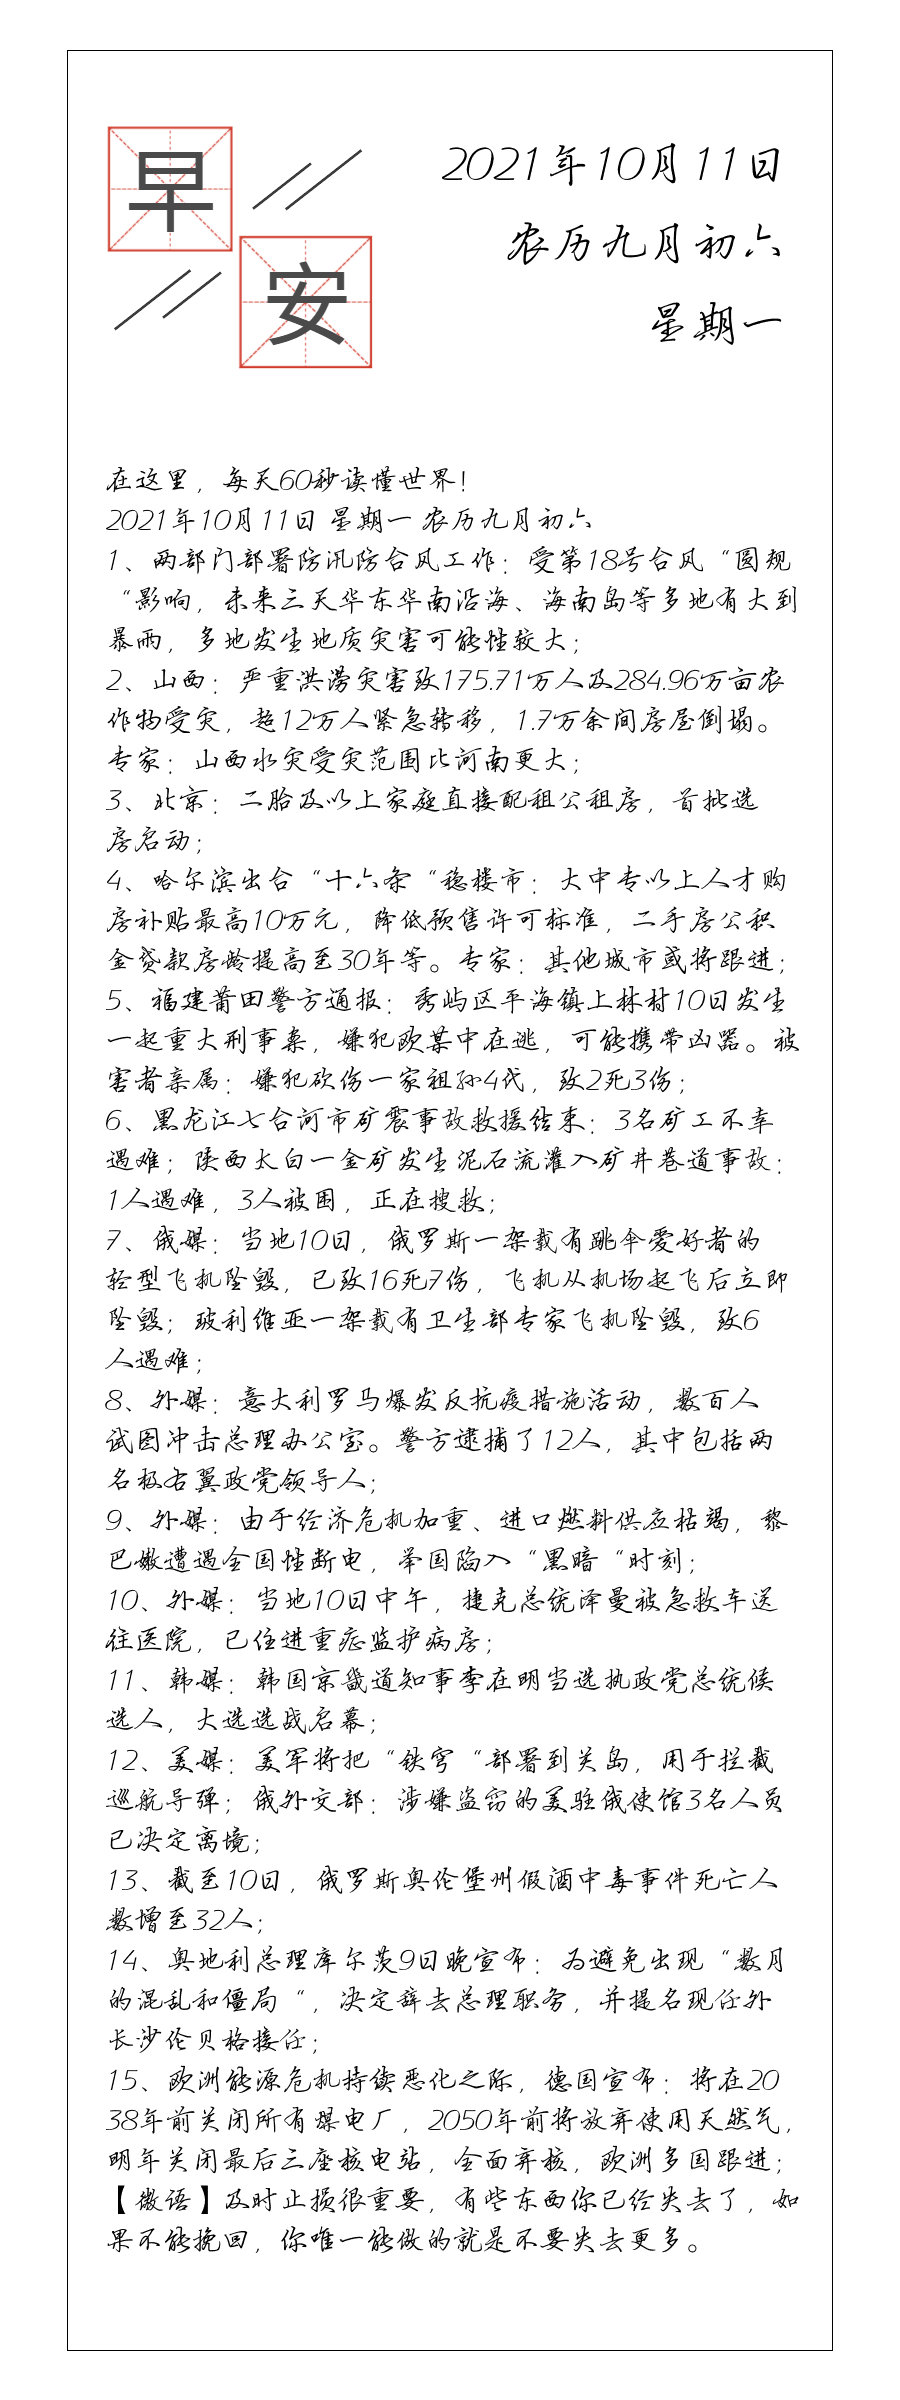 早
安
2021年10月11日
农历九月初六
星期一
在这里，每天60秒读懂世界！
2021年10月11日 星期一 农历九月初六
1、两部门部署防汛防台风工作：受第18号台风“圆规
“影响，未来三天华东华南沿海、海南岛等多地有大到
暴雨，多地发生地质灾害可能性较大；
2、山西：严重洪涝灾害致175.71万人及284.96万亩农
作物受灾，超12万人紧急转移，1.7万余间房屋倒塌。
专家：山西水灾受灾范围比河南更大；
3、北京：二胎及以上家庭直接配租公租房，首批选
房启动；
4、哈尔滨出台“十六条“稳楼市：大中专以上人才购
房补贴最高10万元，降低预售许可标准，二手房公积
金贷款房龄提高至30年等。专家：其他城市或将跟进；
5、福建莆田警方通报：秀屿区平海镇上林村10日发生
一起重大刑事案，嫌犯欧某中在逃，可能携带凶器。被
害者亲属：嫌犯砍伤一家祖孙4代，致2死3伤；
6、黑龙江七台河市矿震事故救援结束：3名矿工不幸
遇难；陕西太白一金矿发生泥石流灌入矿井巷道事故：
1人遇难，3人被困，正在搜救；
7、俄媒：当地10日，俄罗斯一架载有跳伞爱好者的
轻型飞机坠毁，已致16死7伤，飞机从机场起飞后立即
坠毁；玻利维亚一架载有卫生部专家飞机坠毁，致6
人遇难；
8、外媒：意大利罗马爆发反抗疫措施活动，数百人
试图冲击总理办公室。警方逮捕了12人，其中包括两
名极右翼政党领导人；
9、外媒：由于经济危机加重、进口燃料供应枯竭，黎
巴嫩遭遇全国性断电，举国陷入“黑暗“时刻；
10、外媒：当地10日中午，捷克总统泽曼被急救车送
往医院，已住进重症监护病房；
11、韩媒：韩国京畿道知事李在明当选执政党总统候
选人，大选选战启幕；
12、美媒：美军将把“铁穹“部署到关岛，用于拦截
巡航导弹；俄外交部：涉嫌盗窃的美驻俄使馆3名人员
已决定离境；
13、截至10日，俄罗斯奥伦堡州假酒中毒事件死亡人
数增至32人；
14、奥地利总理库尔茨9日晚宣布：为避免出现“数月
的混乱和僵局“，决定辞去总理职务，并提名现任外
长沙伦贝格接任；
15、欧洲能源危机持续恶化之际，德国宣布：将在20
38年前关闭所有煤电厂，2050年前将放弃使用天然气，
明年关闭最后三座核电站，全面弃核，欧洲多国跟进；
【微语】及时止损很重要，有些东西你已经失去了，如
果不能挽回，你唯一能做的就是不要失去更多。